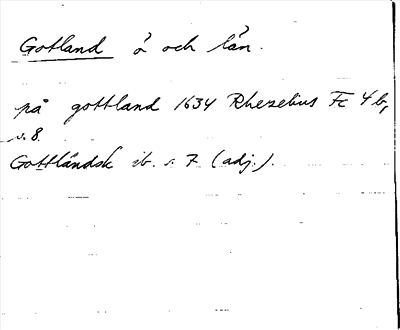 Gotland ö och län.
på gottland 1634 Rhezelius Fc 4 b,
s. 8.
Gottländsk ib. s. 7 (adj.).